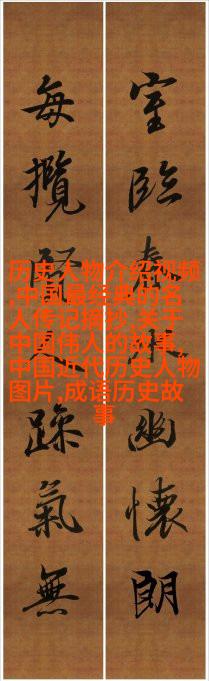 室臨春水幽懷朗
每攬賢躁氣無
历史人物介绍视频
,中国最经典的名
人传记摘抄,关于
中国伟人的故事,
中国近代历史人物
图片,成语历史故
事